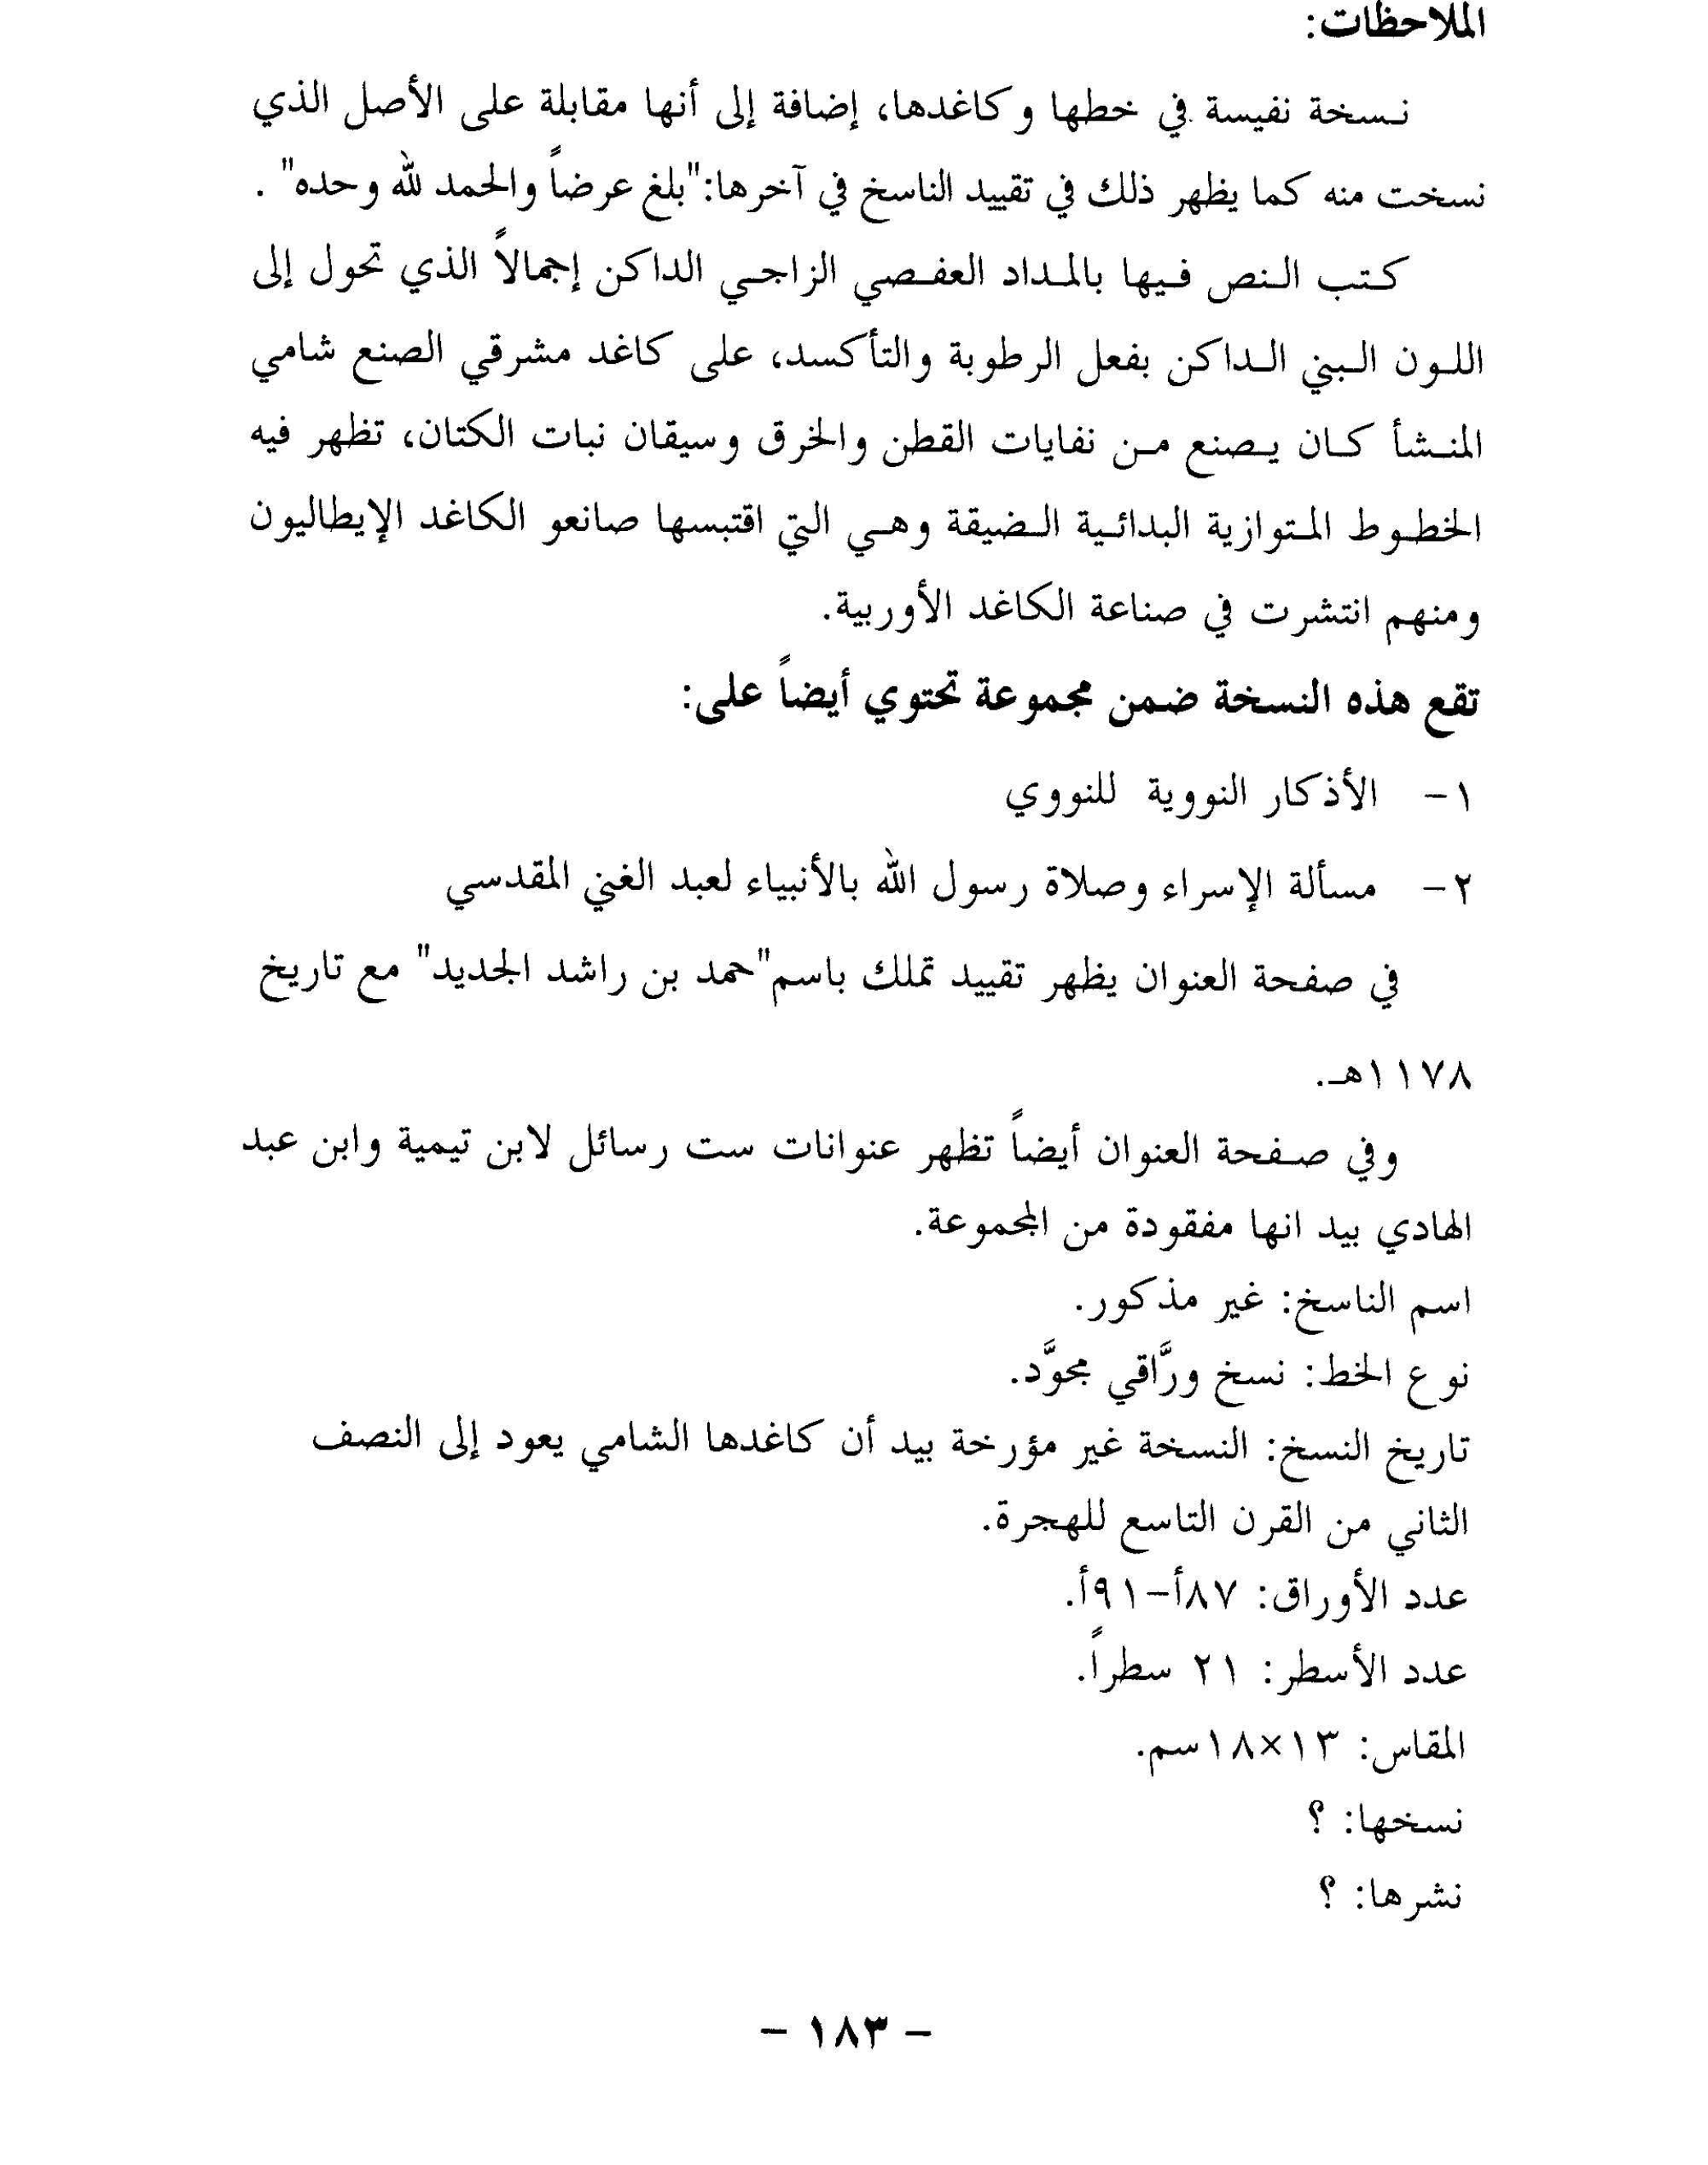 الملاحظات:
نسخة نفيسة في خطها وكاغدها، إضافة إلى أنها مقابلة على الأصل الذي
نسخت منه كما يظهر ذلك في تقييد الناسخ في آخرها:"بلغ عرضاً والحمد لله وحده" .
كتب النص فيها بالمداد العفصي الزاجي الداكن إجمالاً الذي تحول إلى
اللون البني الداكن بفعل الرطوبة والتأكسد، على كاغد مشرقي الصنع شامي
المنشأ كان يصنع من نفايات القطن والخرق وسيقان نبات الكتان، تظهر فيه
الخطوط المتوازية البدائية الضيقة وهي التي اقتبسها صانعو الكاغد الإيطاليون
ومنهم انتشرت في صناعة الكاغد الأوربية.
تقع هذه النسخة ضمن مجموعة تحتوي أيضاً على:
١- الأذكار النووية للنووي
٢- مسألة الإسراء وصلاة رسول الله بالأنبياء لعبد الغني المقدسي
في صفحة العنوان يظهر تقييد تملك باسم"حمد بن راشد الجديد" مع تاريخ
١١٧٨هـ.
وفي صفحة العنوان أيضاً تظهر عنوانات ست رسائل لابن تيمية وابن عبد
الهادي بيد انها مفقودة من المجموعة.
اسم الناسخ: غير مذكور.
نوع الخط: نسخ ورَّاقي مجوَّد.
تاريخ النسخ: النسخة غير مؤرخة بيد أن كاغدها الشامي يعود إلى النصف
الثاني من القرن التاسع للهجرة.
عدد الأوراق: ٨٧أ-٩١أ.
عدد الأسطر: ٢١ سطراً.
المقاس: ١٣×١٨سم.
نسخها: ؟
نشرها: ؟
- ١٨٣ -